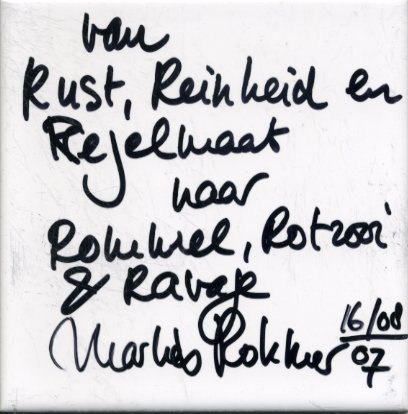 van
Rust, Reinheid en
Regelmaat
naar
Rommel, Rotzooi
& Ravage
16/08
07